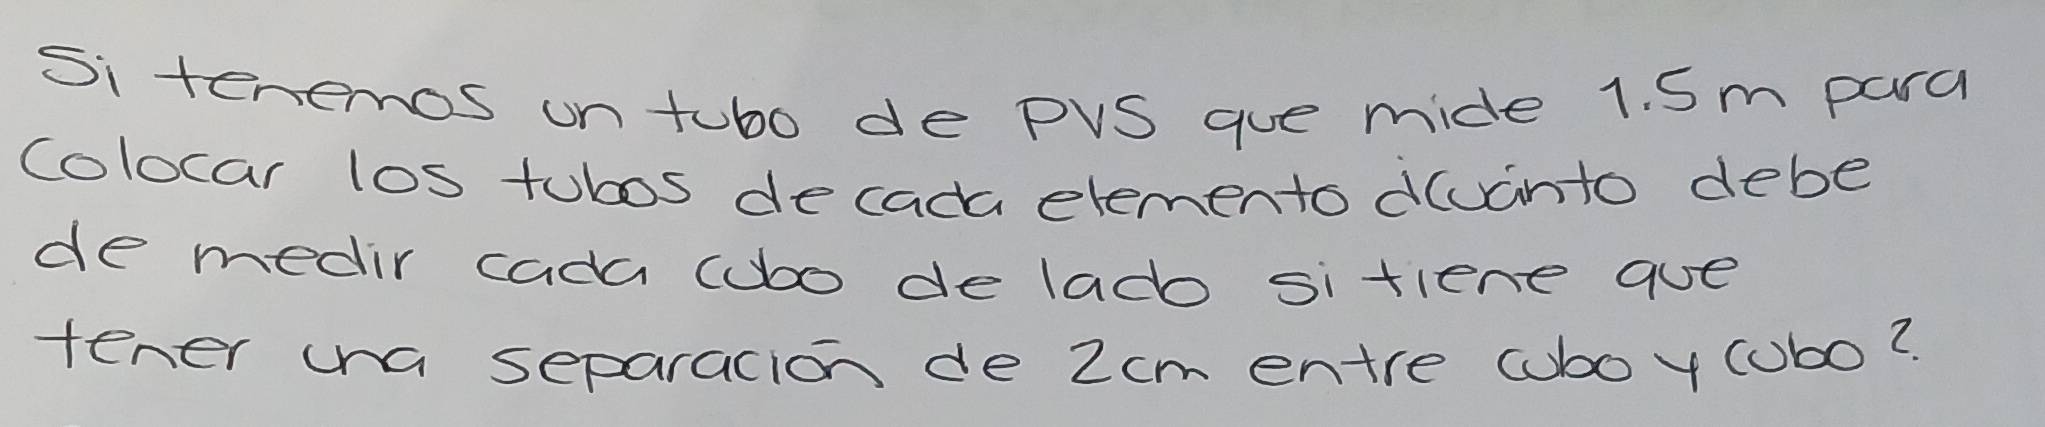 Si tenemos un tubo de PVS que mide 1.5m para
colocar los tubos de cada elemento ¿cuánto debe
de medir cada cubo de lado si tiene que
tener una separación de 2cm entre cubo y cubo?